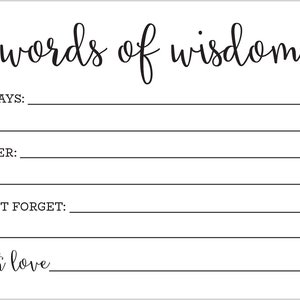 words of wisdom
AYS:
ER:
T FORGET:
love